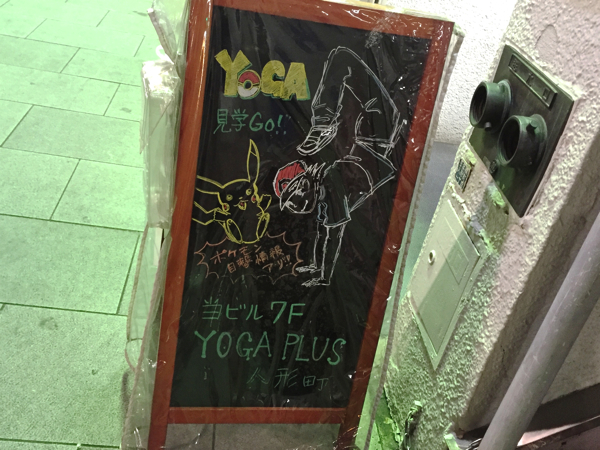 YOGA
見学Go!
ポケモン
目撃情報
アリ!!
当ビル7F
YOGA PLUS
人形町